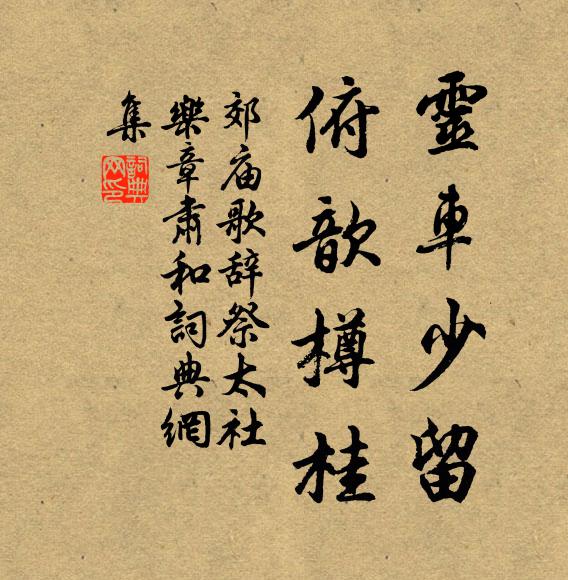 靈車少留
俯歆樽桂
郊庙歌辞祭太社
樂章肅和詞典網
集
詞典
网印